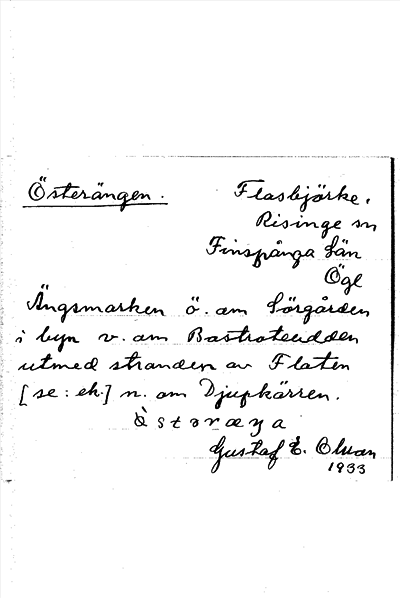 Österängen. Flasbjörke,
Risinge sn
Finspånga län
Ögl
Ängsmarken ö. om Sörgården
i byn v. om Bastroteudden
utmed stranden av Flaten
[se: ek.] n. om Djupkärren.
Gustaf E. Olsson
1933